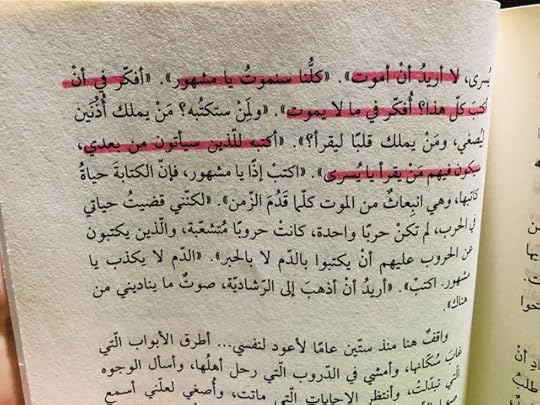 يُسرى، لا أريدُ أنْ أموت». «كلُّنا سنموتُ يا مشهور». «أفكّر في أنْ
أكتبَ كلّ هذا؟ أُفكّر في ما لا يموت». «ولمَنْ ستكتبُه؟ مَنْ يملك أُذُنَين
ليُصغي، ومَنْ يملك قلبًا ليقرأ؟». «أكتبه للّذين سيأتون من بعدي،
سيكون فيهم مَنْ يقرأ يا يُسرى». «اكتبْ إذًا يا مشهور، فإنّ الكتابةَ حياةُ
كاتبها، وهي انبِعاثٌ من الموت كلّما قَدُمَ الزّمن». «لكنّني قضيتُ حياتي
في الحرب، لم تكنْ حربًا واحدة، كانتْ حروبًا مُتشعّبة، والّذين يكتبون
عن الحروب عليهم أنْ يكتبوا بالدّم لا بالحبر». «الدّم لا يكذب يا
مشهور. اكتبْ». «أريدُ أنْ أذهبَ إلى الرّشاديّة، صوتٌ ما يناديني من
هناك».
واقفٌ هنا منذ ستّين عامًا لأعود لنفسي... أطرق الأبواب الّتي
غابَ سُكّانها، وأمشي في الدّروب الّتي رحل أهلُها، وأسأل الوجوه
الّتي تبدّلتْ، وأنتظر الإجابات الّتي ماتت، وأُصغي لعلّني أسمع